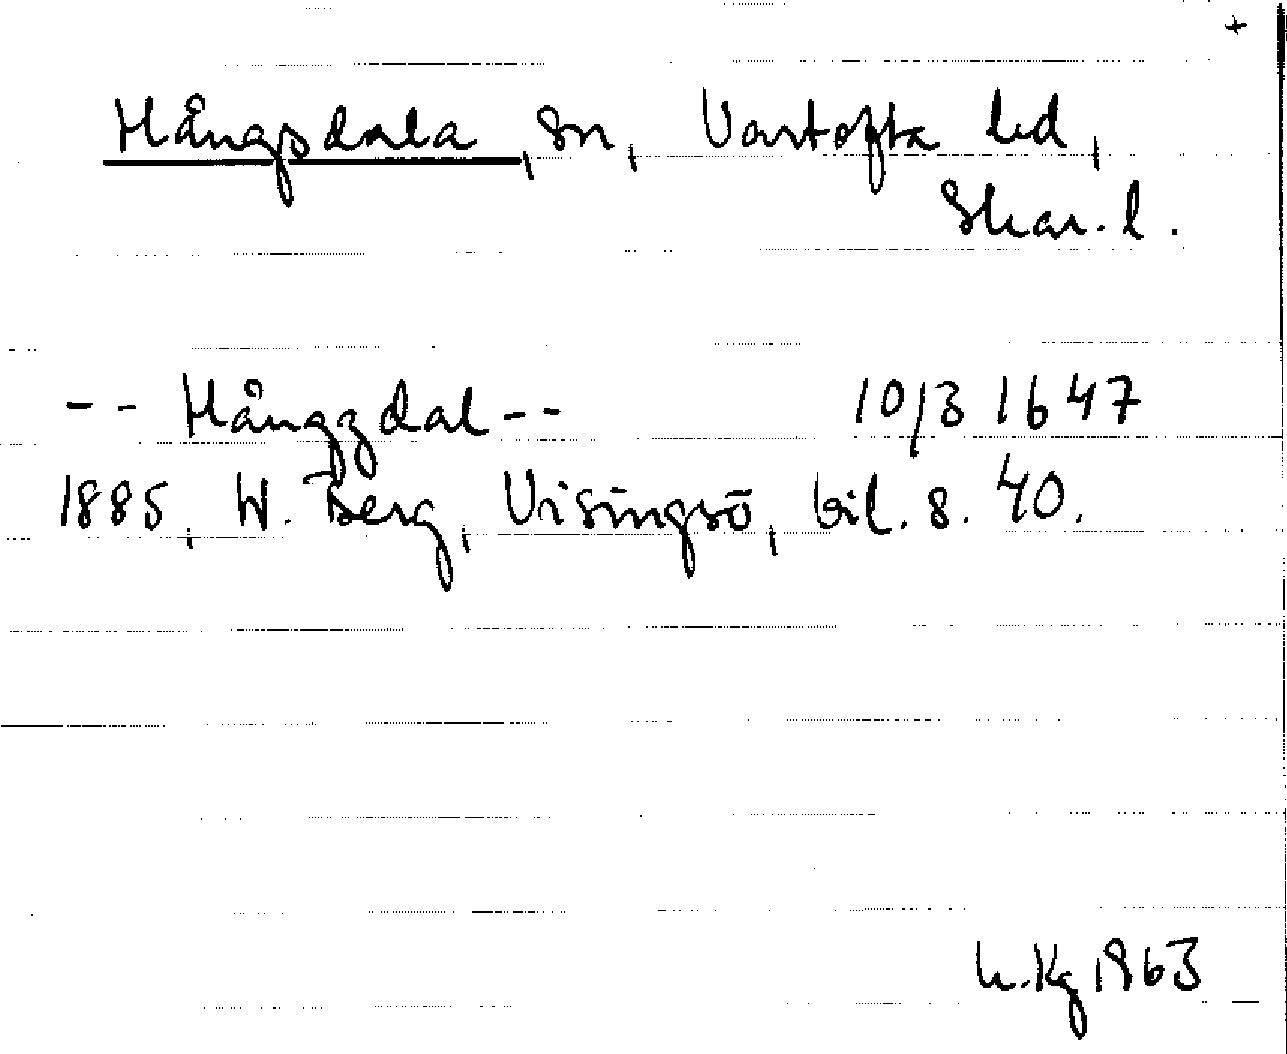 +
Hångsdala, sn, Vartofta hd,
Skar. l.
-- Hångzdal -- 10/3 1647
1885, W. Berg, Visingsö, bil. s. 40.
h.Kg 1963